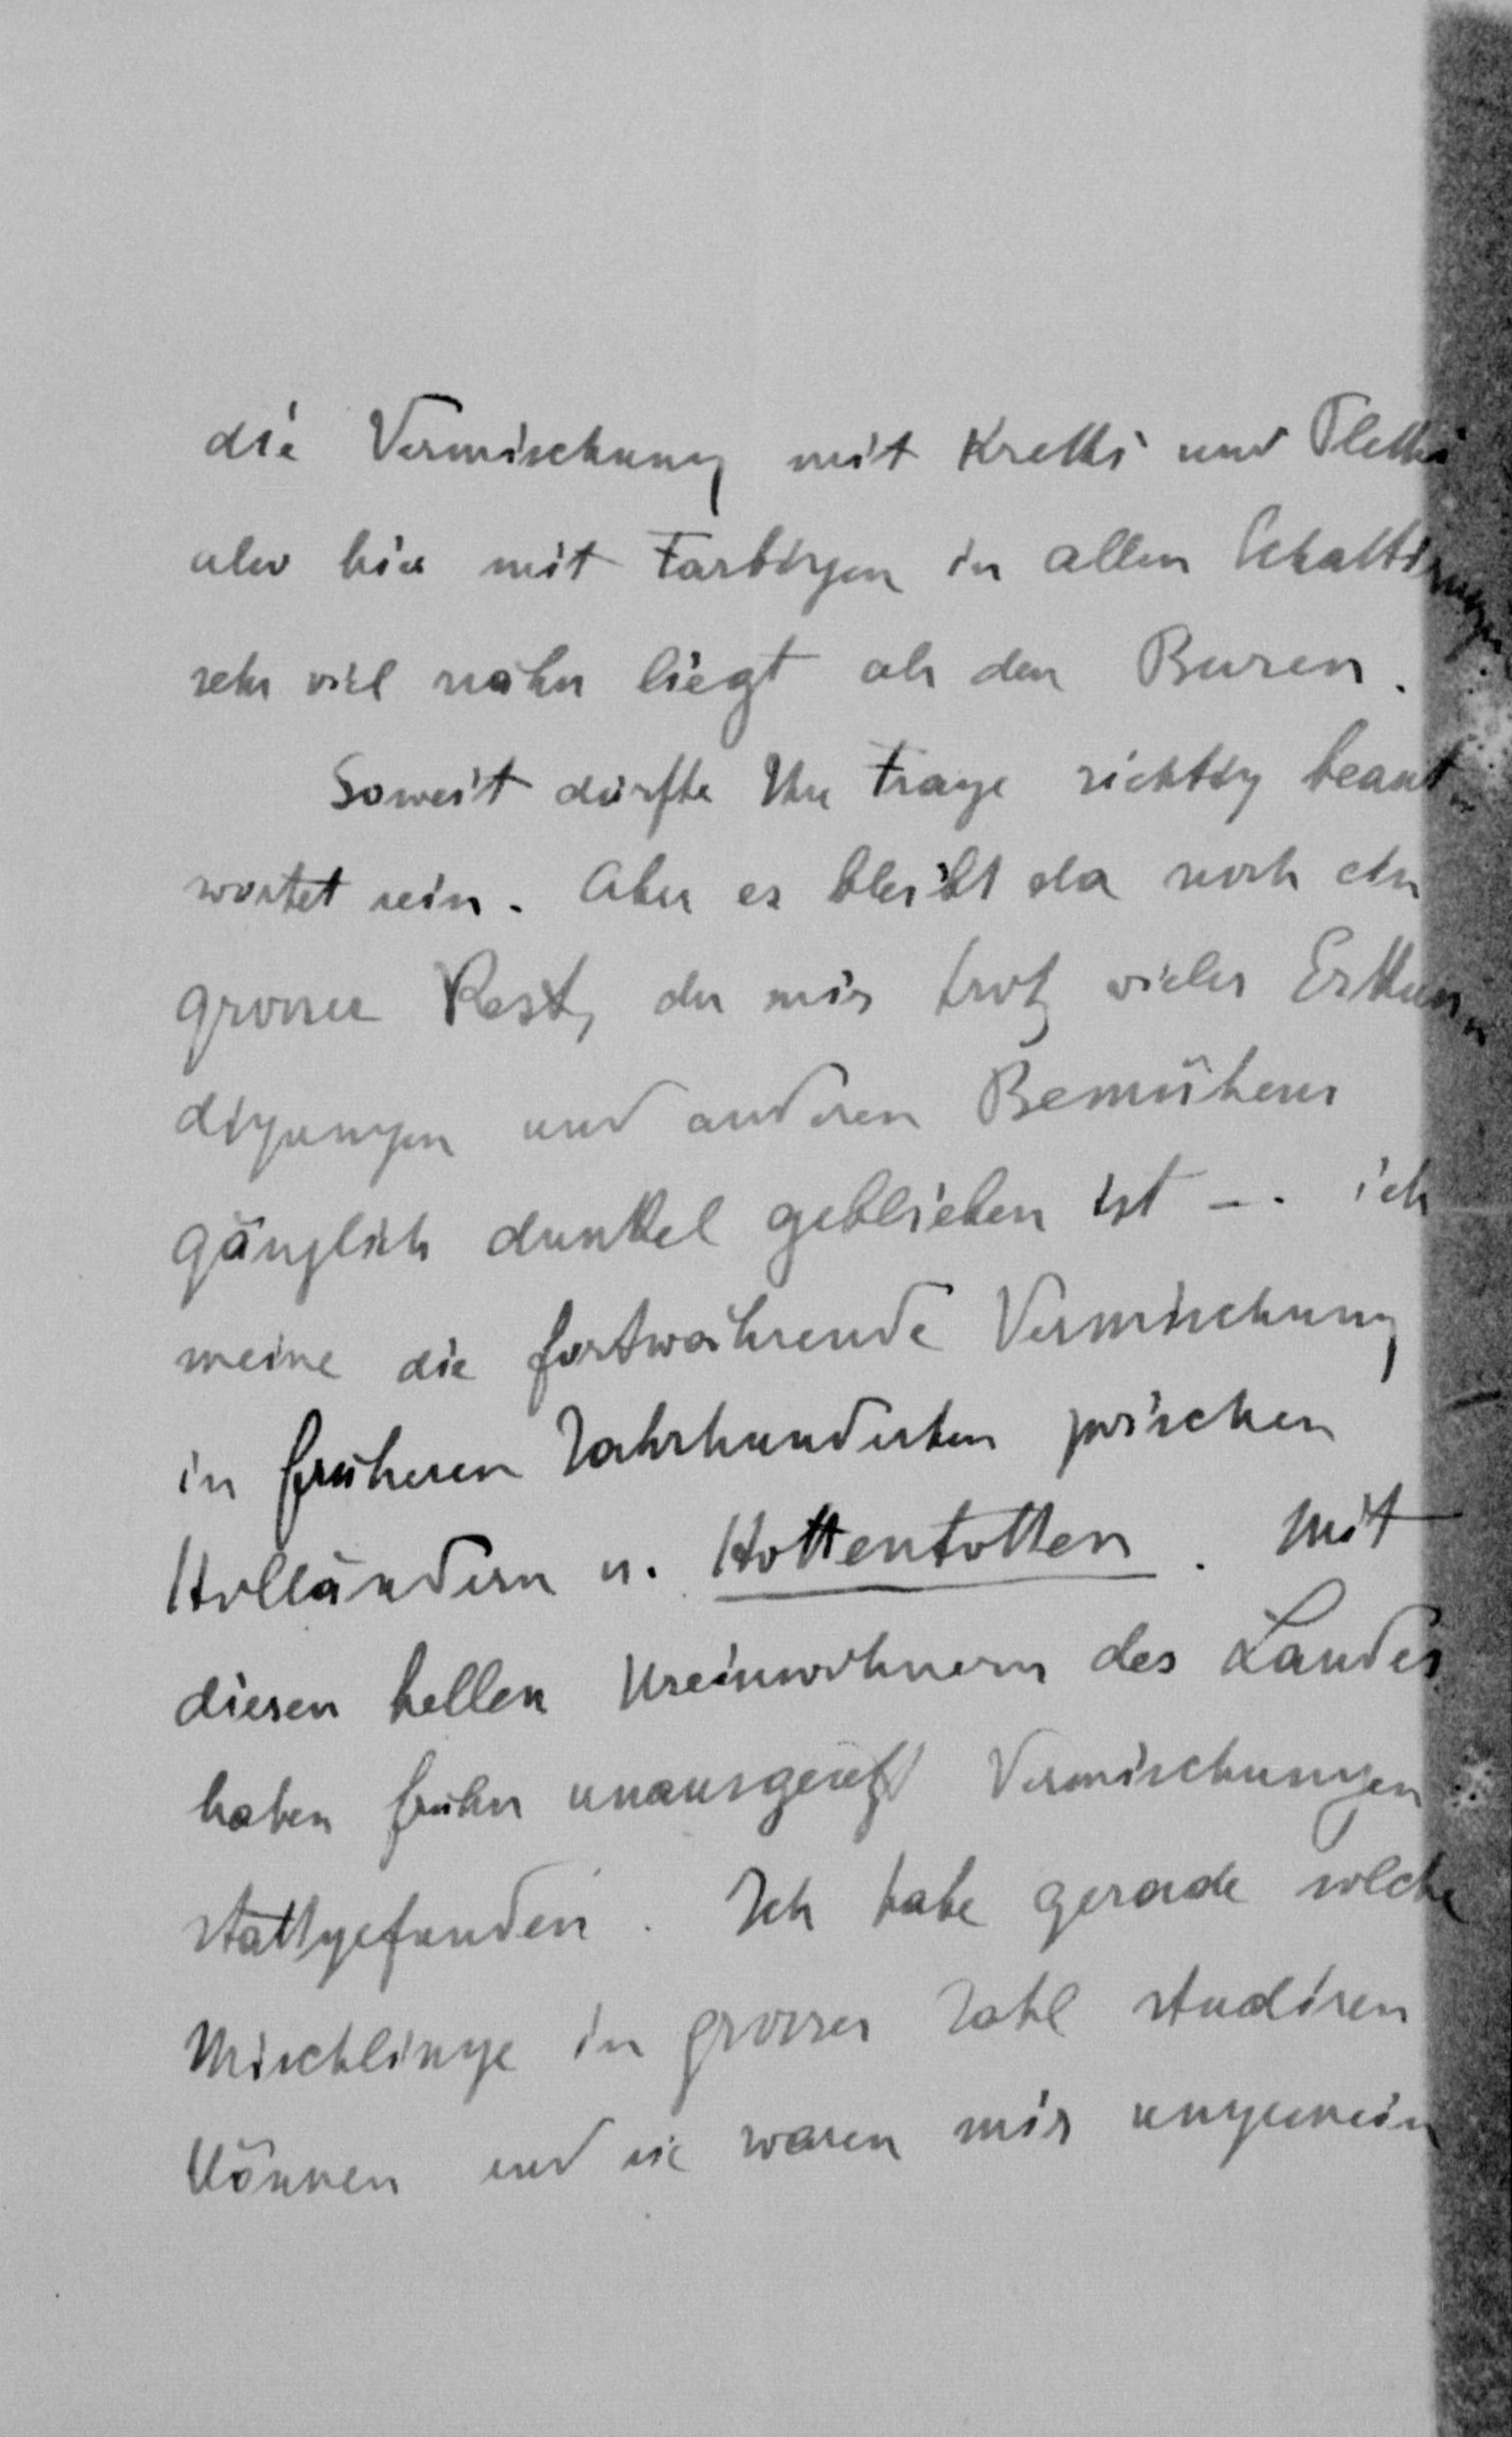 die Vermischung mit Kretki und Pletki
also hier mit Farbigen in allen Schattirungen
sehr viel näher liegt als den Buren.
Soweit dürfte Ihre Frage richtig beant-
wortet sein. Aber es bleibt da noch ein
grosser Rest, der mir trotz vieler Erkun-
digungen und anderen Bemühens
gänzlich dunkel geblieben ist —. ich
meine die fortwährende Vermischung
in früheren Jahrhunderten zwischen
Holländern u. Hottentotten. Mit
diesen hellen Ureinwohnern des Landes
haben früher unausgesetzt Vermischungen
stattgefunden. Ich habe gerade solche
Mischlinge in grosser Zahl studiren
können und sie waren mir ungemein